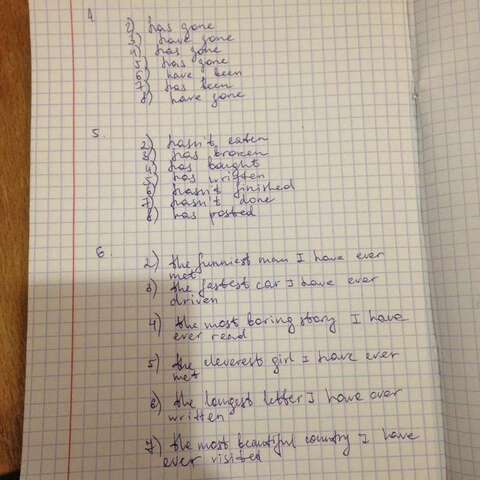 4
2) has gone
3) have gone
4) has gone
5) has gone
6) have been
7) has been
8) have gone
5.
2) hasn't eaten
3) has broken
4) has bought
5) has written
6) hasn't finished
7) hasn't done
8) has posted
6.
2) the funniest man I have ever
met
3) the fastest car I have ever
driven
4) the most boring story I have
ever read
5) the cleverest girl I have ever
met
6) the longest letter I have ever
written
7) the most beautiful country I have
ever visited